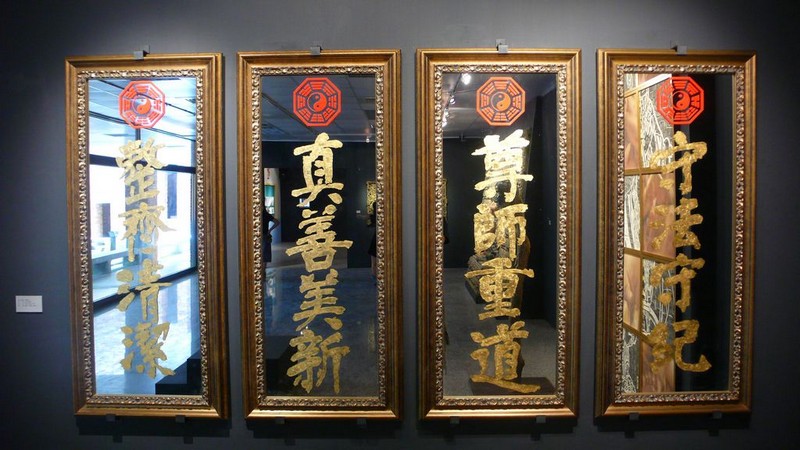 守法守紀
尊師重道
真善美新
整齊清潔